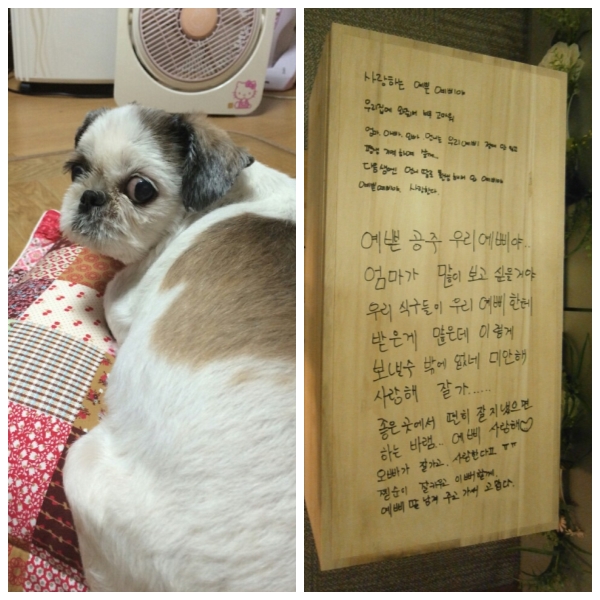 사랑하는 예쁜 예삐야
우리집에 와줘서 고마워
엄마, 아빠, 오빠, 언니는 우리 예삐
평생 기억하며
다음 생엔
사랑한다.
예쁜 공주 우리 예삐야..
엄마가 많이 보고 싶을거야
우리 식구들이 우리 예삐한테
받은게 많은데 이렇게
보낼수 밖에 없네 미안해
사랑해 잘가.....
좋은곳에서 편히 잘지냈으면
하는 바램.. 예삐 사랑해♡
오빠가 잘가고. 사랑한다고 ㅠㅠ
잘키우고 이뻐할께.
예삐 딸 남겨 주고 가서 고맙다.